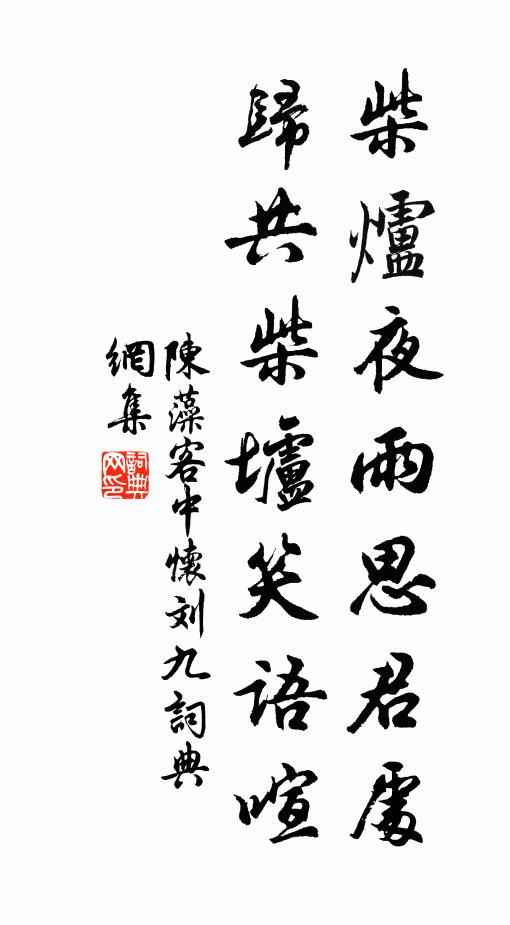 柴爐夜雨思君處
歸共柴壚笑語喧
陳藻客中懷刘九詞典
網集
詞典網印